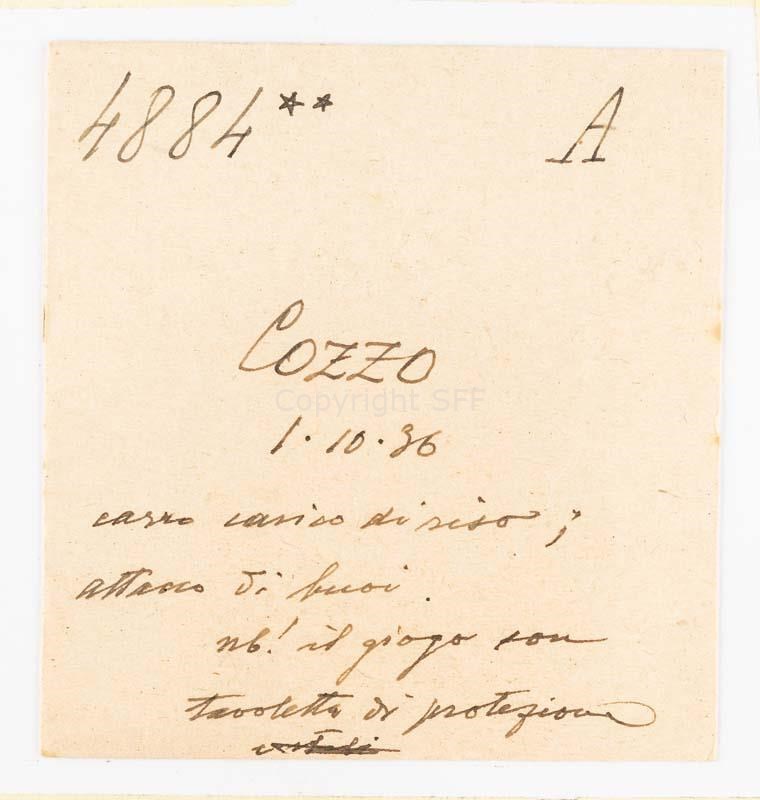 4884** A
Cozzo
Copyright SFF
1.10.36
carro carico di riso ;
attacco di buoi.
nb! il giogo con
tavoletta di protezione